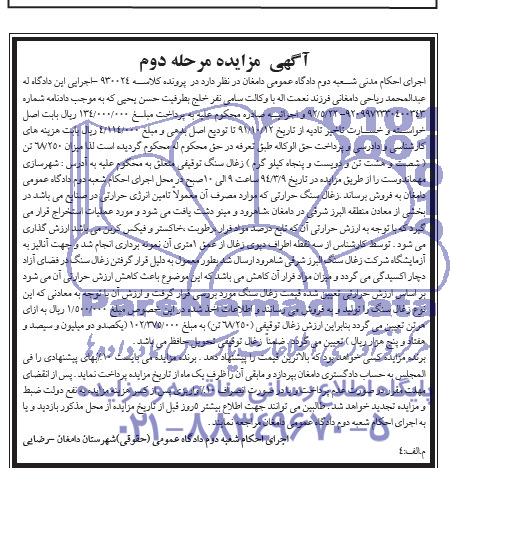 آگهی مزایده مرحله دوم
اجرای احکام مدنی شعبه دوم دادگاه عمومی دامغان در نظر دارد در پرونده کلاسه ۹۳۰۰۲۴ -اجرایی این دادگاه له
عبدالمحمد ریاحی دامغانی فرزند نعمت اله با وکالت سامی نفر خلج بطرفیت حسن یحیی که به موجب دادنامه شماره
۹۲/۵/۲۲-۹۲۰۹۹۷۲۳۳۰۴۰۰۳۴۳ و اجرائیه صادره محکوم علیه به پرداخت مبلغ ۱۳۴/۰۰۰/۰۰۰ ریال بابت اصل
خواسته و خسارت تاخیر تادیه از تاریخ ۹۱/۱۰/۱۲ تا تودیع اصل بدهی و مبلغ ۴/۱۱۴/۰۰۰ ریال بابت هزینه های
کارشناسی و دادرسی و پرداخت حق الوکاله طبق تعرفه در حق محکوم له محکوم گردیده است لذا میزان ۶۸/۲۵۰ تن
( شصت و هشت تن و دویست و پنجاه کیلو گرم ) زغال سنگ توقیفی متعلق به محکوم علیه به آدرس : شهرسازی
مهماندوست را از طریق مزایده در تاریخ ۹۴/۳/۹ ساعت ۹ الی ۱۰صبح در محل اجرای احکام شعبه دوم دادگاه عمومی
دامغان به فروش برساند .زغال سنگ حرارتی که موارد مصرف آن معمولاً تامین انرژی حرارتی در صنایع می باشد در
بخشی از معادن منطقه البرز شرقی در دامغان شاهرود و مینو دشت یافت می شود و مورد عملیات استخراج قرار می
گیرد که با توجه به ارزش حرارتی آن که تابع درصد مواد فرار ،رطوبت ،خاکستر و فیکس کربن می باشد ارزش گذاری
می شود . توسط کارشناس از سه نقطه اطراف دپوی زغال از عمق ۱متری آن نمونه برداری انجام شد و جهت آنالیز به
آزمایشگاه شرکت زغال سنگ البرز شرقی شاهرود ارسال شد بطور معمول به دلیل قرار گرفتن زغال سنگ در فضای آزاد
دچار اکسیدگی می گردد و میزان مواد فرار آن کاهش می باشد که این موضوع باعث کاهش ارزش حرارتی آن می شود
بر اساس ارزش حرارتی تعیین شده قیمت زغال سنگ مورد بررسی قرار گرفت و ارزش آن با توجه به معادنی که این
نوع زغال سنگ را تولید و به فروش می رسانند و اطلاعات اخذ شده در این خصوص مبلغ ۱/۵۰۰/۰۰۰ ریال به ازای
هر تن تعیین می گردد بنابراین ارزش زغال توقیفی (۶۸/۲۵۰ تن) به مبلغ ۱۰۲/۳۷۵/۰۰۰ (یکصدو دو میلیون و سیصد و
هفتاد و پنج هزار ریال ) تعیین می گردد. ضمنا زغال توقیفی تحویل حافظ می باشد .
برنده مزایده کسی خواهد بود که بالاترین قیمت را پیشنهاد دهد . برنده مزایده می بایست ۱۰٪بهای پیشنهادی را فی
المجلس به حساب دادگستری دامغان بپردازد و مابقی آن را ظرف یک ماه از تاریخ مزایده پرداخت نماید . پس از انقضای
مهلت مقرر در صورت عدم پرداخت و یا در صورت انصراف ۱۰٪ واریزی پس از کسر هزینه مزایده به نفع دولت ضبط
و مزایده تجدید خواهد شد . طالبین می توانند جهت اطلاع بیشتر ۵روز قبل از تاریخ مزایده از محل مذکور بازدید و یا
به اجرای احکام شعبه دوم دادگاه عمومی دامغان مراجعه نمایند .
اجرای احکام شعبه دوم دادگاه عمومی (حقوقی)شهرستان دامغان -رضایی
م.الف:۴
پایگاه اطلاع رسانی مناقصه مزایده
۰۲۱-۸۸۳۴۹۶۷۰-۵